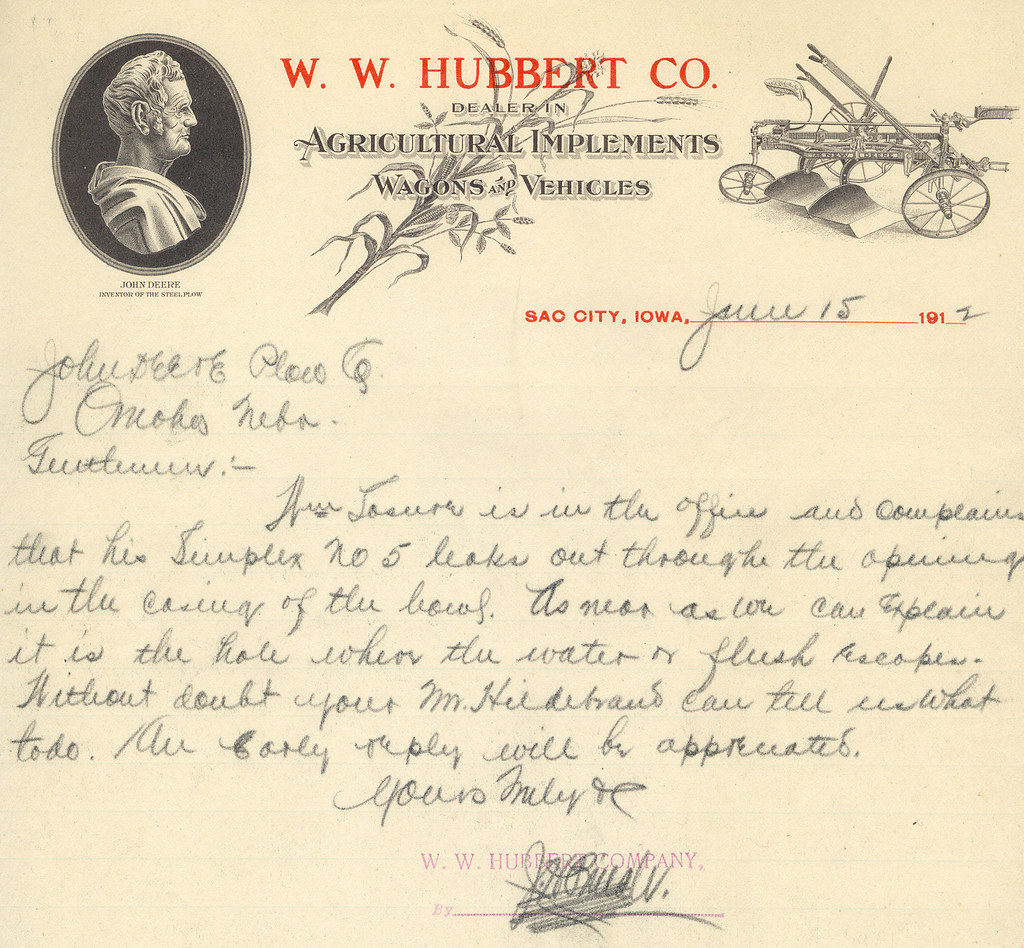 W. W. HUBBERT CO.
DEALER IN
AGRICULTURAL IMPLEMENTS
WAGONS AND VEHICLES
NEW DEERE
JOHN DEERE
INVENTOR OF THE STEEL PLOW
SAC CITY, IOWA, June 15 1912
John Deere Plow Co.
Omaha Nebr.
Gentlemen:-
Wm is in the office and complains
that his Simplex No 5 leaks out throughe the opening
in the casing of the bowl. As near as we can explain
it is the hole where the water or flush escapes.
Without doubt your Mr. Hildebrand can tell us what
todo. An Early reply will be appreciated.
Yours Truly &c
W. W. HUBBERT COMPANY,
By